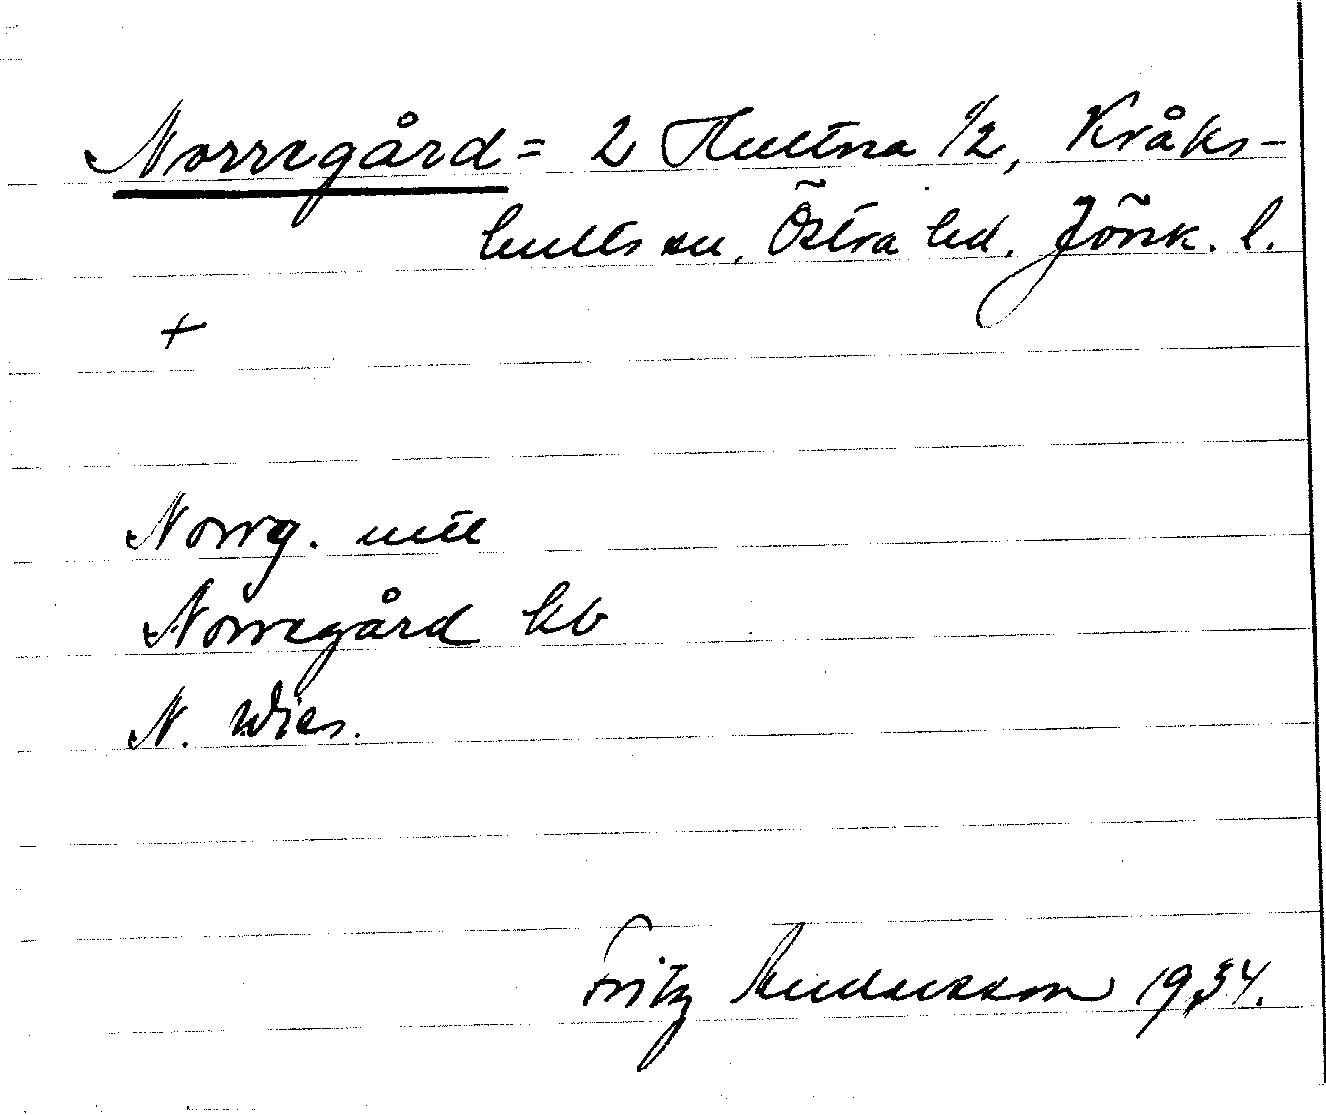 Norregård = 2 Hultna 1/2, Kråks-
hults sn, Östra hd. Jönk. l.
+
Norrg. mtl
Norregård kb
N. Wies.
Fritz Andersson 1934.